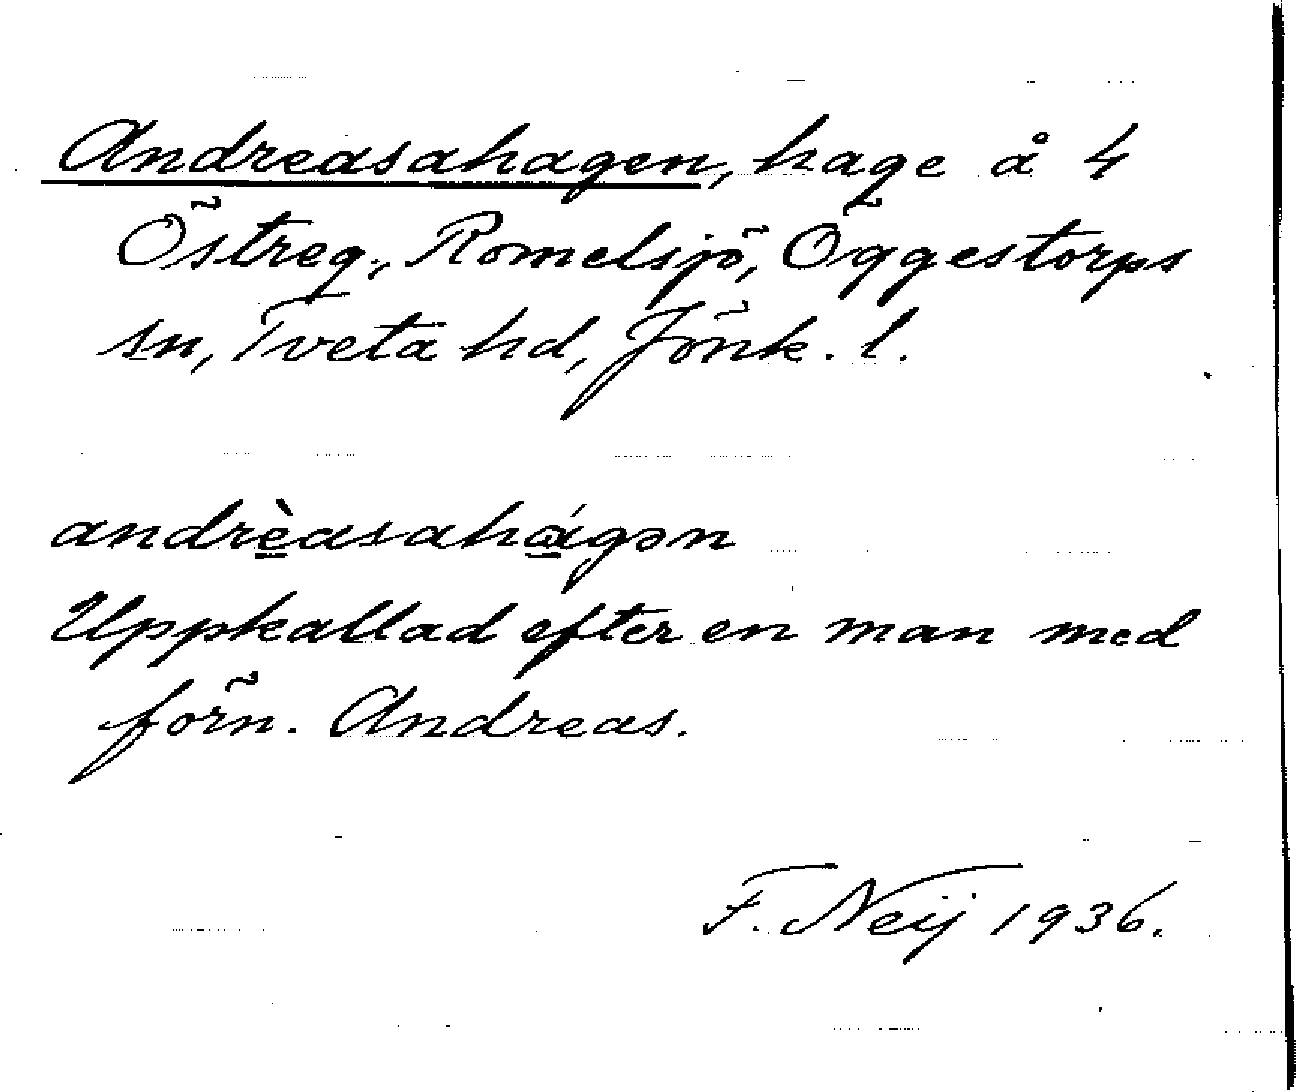 Andreasahagen, hage å 4
Östreg., Romelsjö, Öggestorps
sn, Tveta hd, Jönk. l.
andrèasahágən
Uppkallad efter en man med
förn. Andreas.
F. Neij 1936.